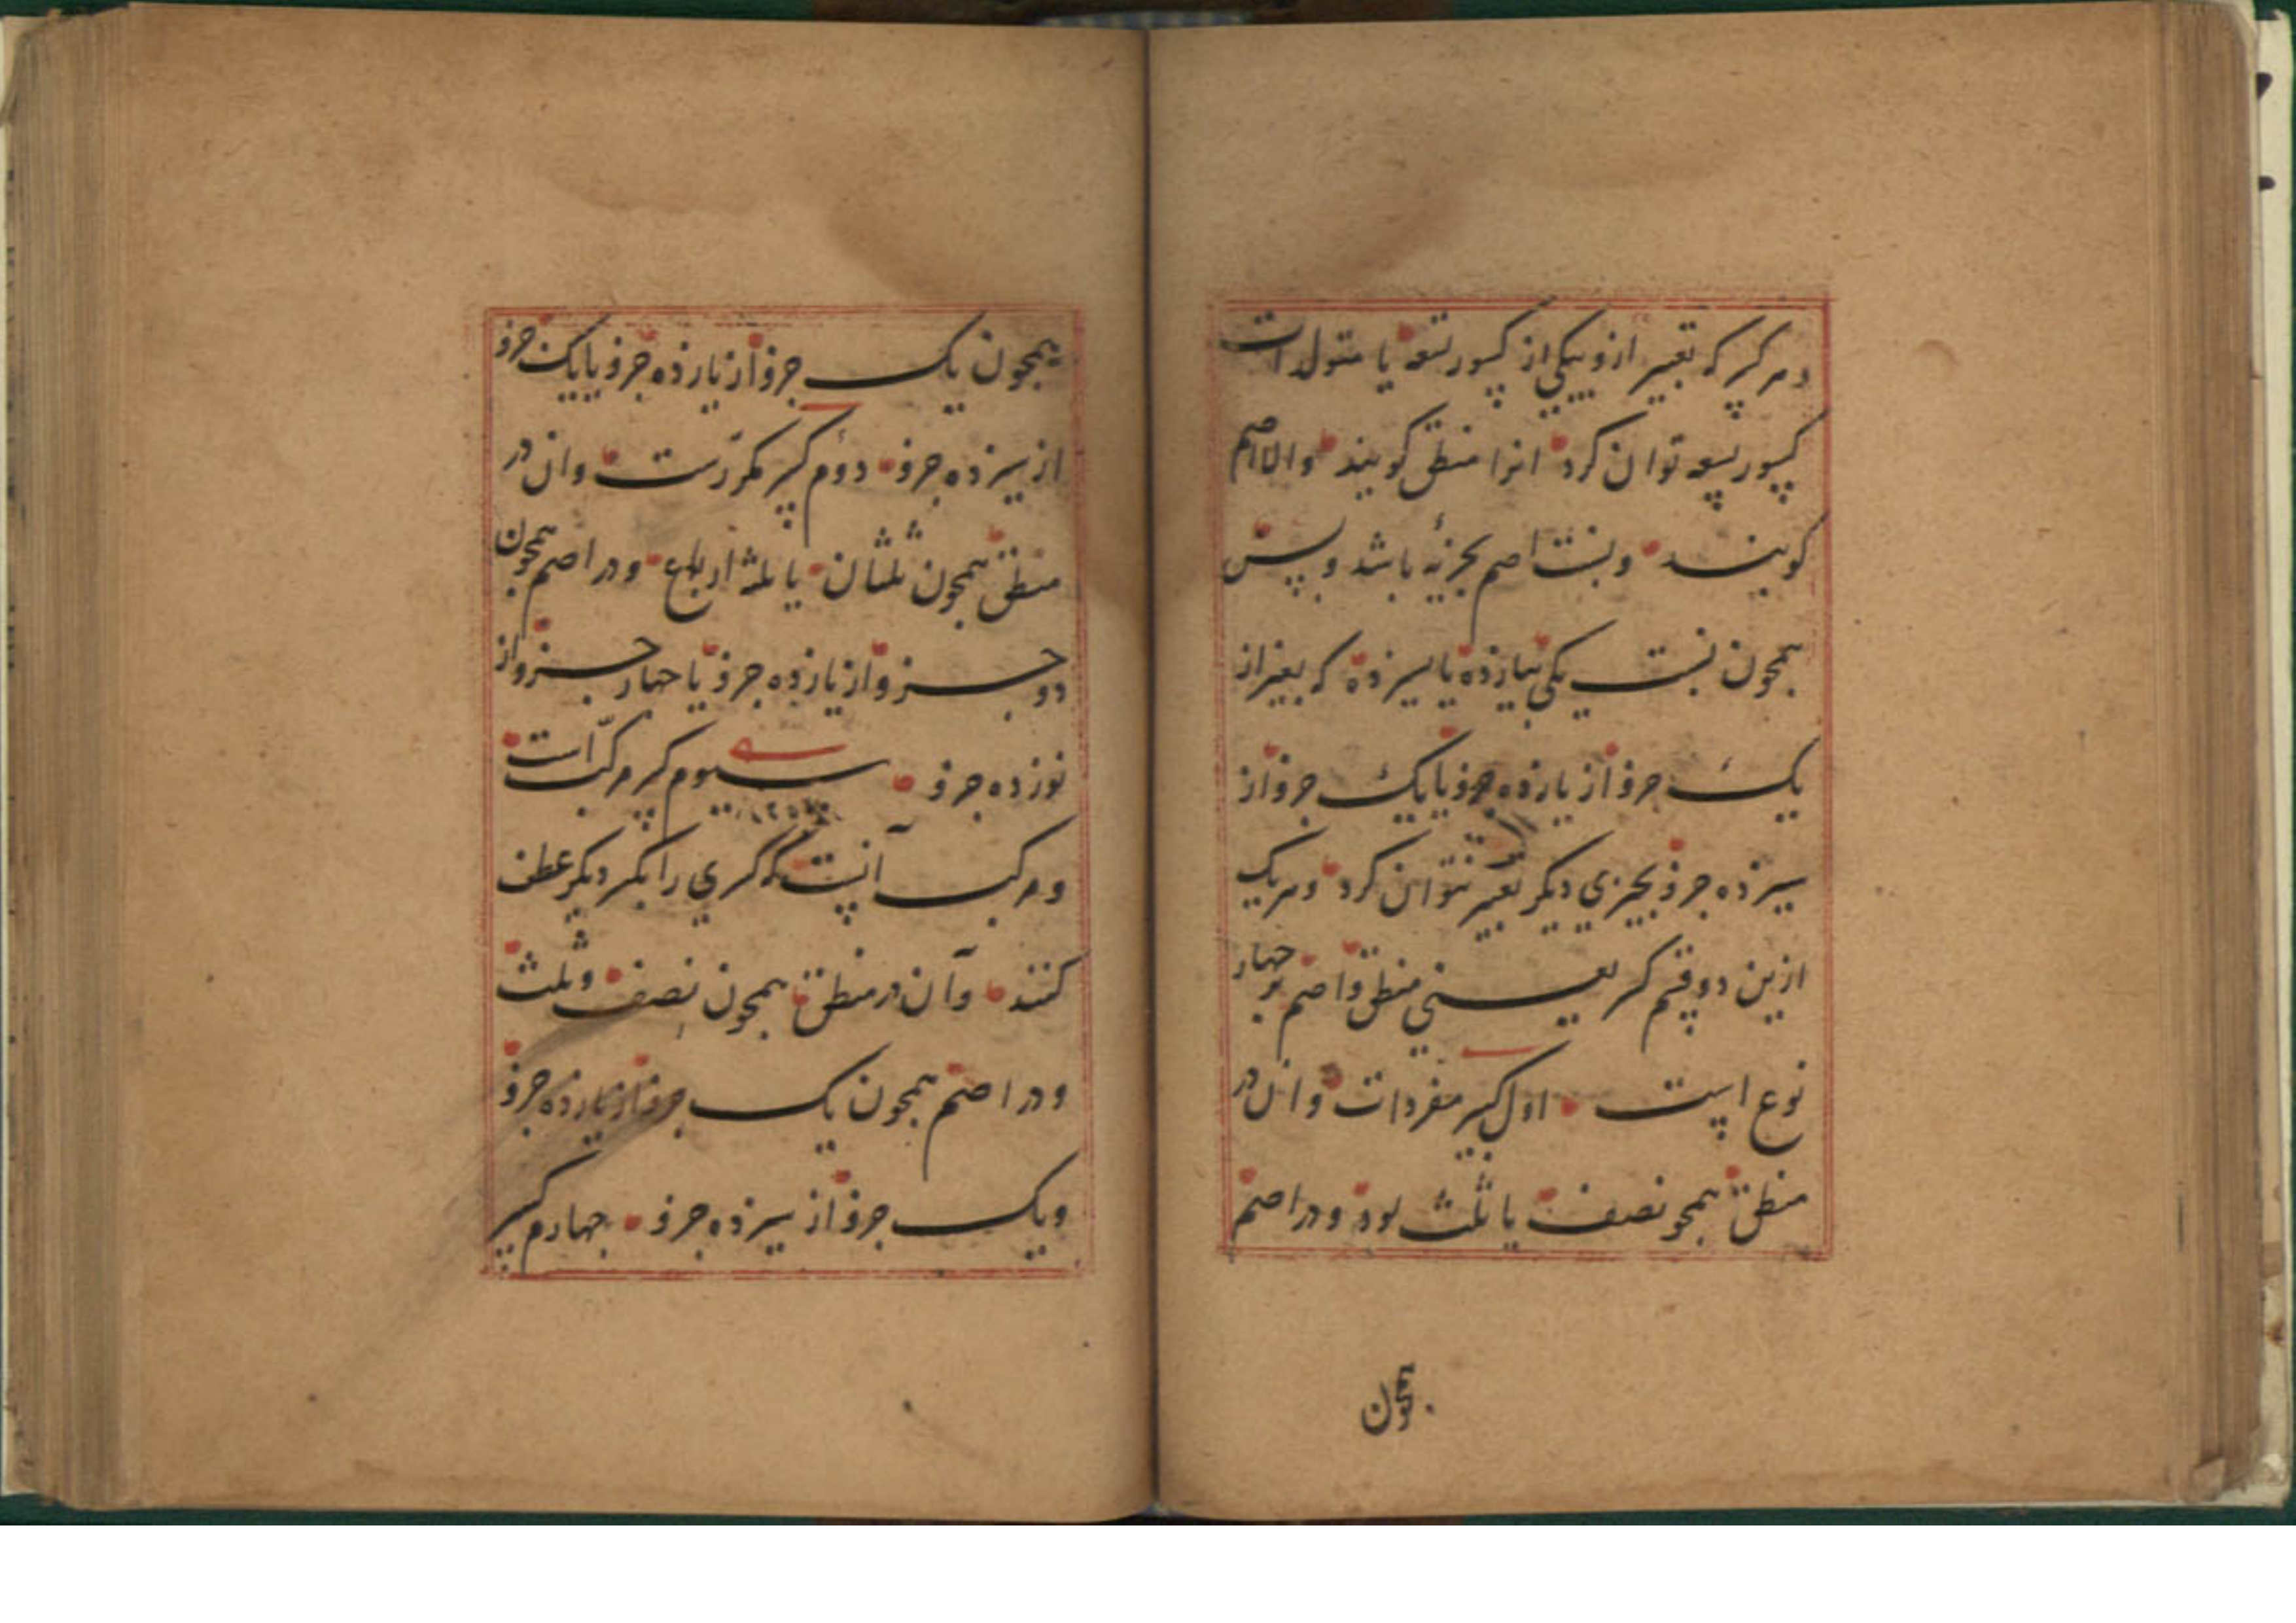 و هر کسر که تعبیر ازو بیکی از کسور تسعه یا متولدات
کسور تسعه توان کرد انرا منطق کویند والا اصم
کویند و نسبت اصم بجزئه باشد و بس
همچون نسبت یکی بیازده یا سیزده که بغیر از
یک جزو از یازده جزو یا یک جزو از
سیزده جزو بچیزی دیکر تعبیر نتوان کرد و هر یک
ازین دو قسم کسر یعنی منطق و اصم بر چهار
نوع است اول کسر مفردات و ان در
منطق همچو نصف یا ثلث بود و در اصم
همچون
همچون یک جزو از یازده جزو یا یک جزو
از سیزده جزو دوم کسر مکررست و ان در
منطق همچون ثلثان یا ثلثه ارباع و در اصم همچون
دو جزو از یازده جزو یا چهار جزو از
نوزده جزو سیوم کسر مرکب است
و مرکب آنست که کسری را بکسر دیکر عطف
کنند و آن در منطق همچون نصف و ثلث
و در اصم همچون یک جزو از یازده جزو
و یک جزو از سیزده جزو چهارم کسر